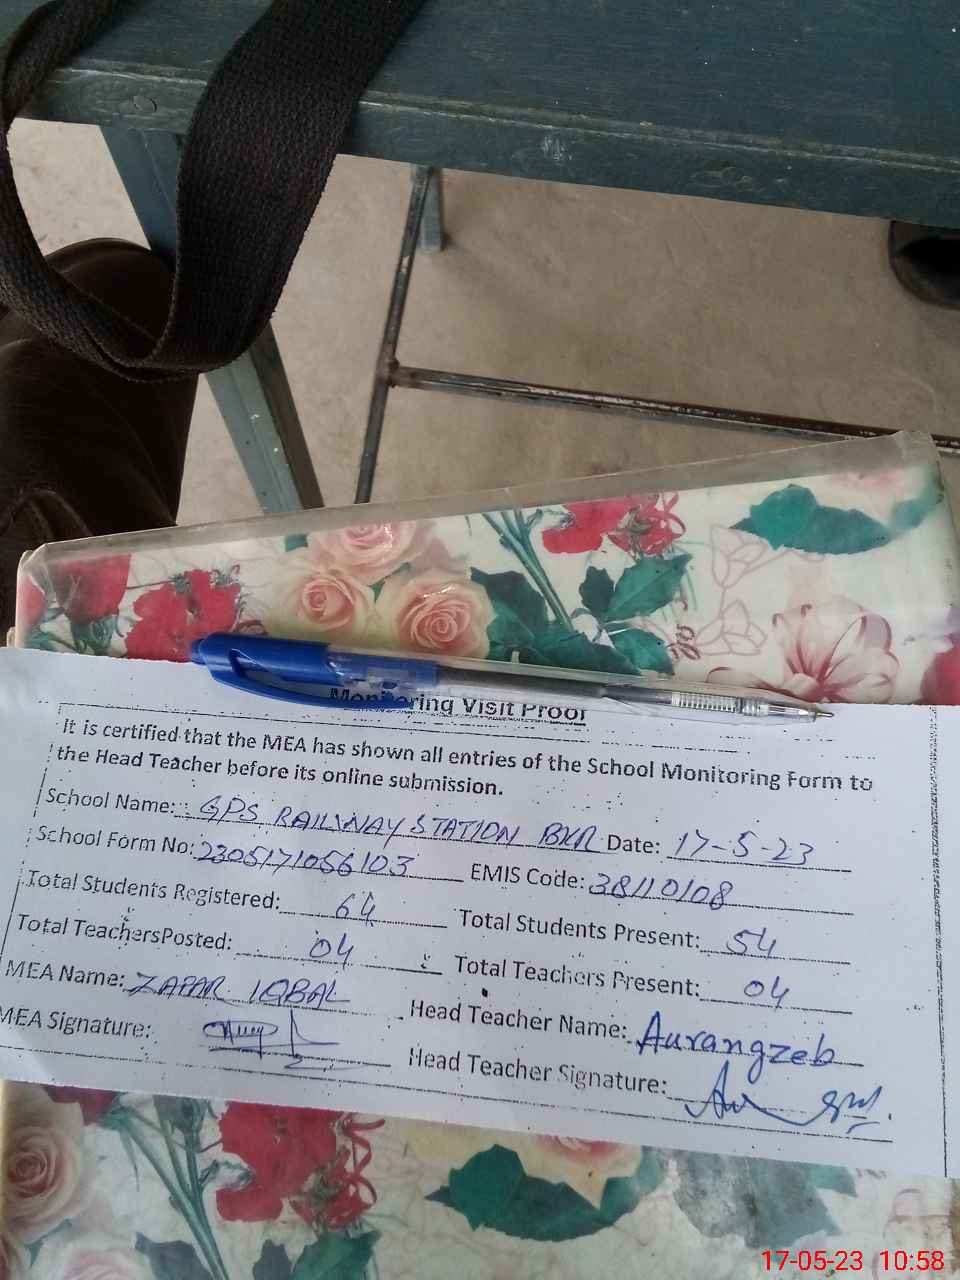 Monitoring Visit Proof
It is certified that the MEA has shown all entries of the School Monitoring Form to
the Head Teacher before its online submission.
School Name: GPS RAILWAY STATION BKR Date: 17-5-23
School Form No: 2305171056103 EMIS Code: 38110108
Total Students Registered: 64 Total Students Present: 54
Total TeachersPosted: 04 Total Teachers Present: 04
MEA Name: ZAFAR IQBAL Head Teacher Name: Aurangzeb
MEA Signature: Head Teacher Signature:
17-05-23 10:58